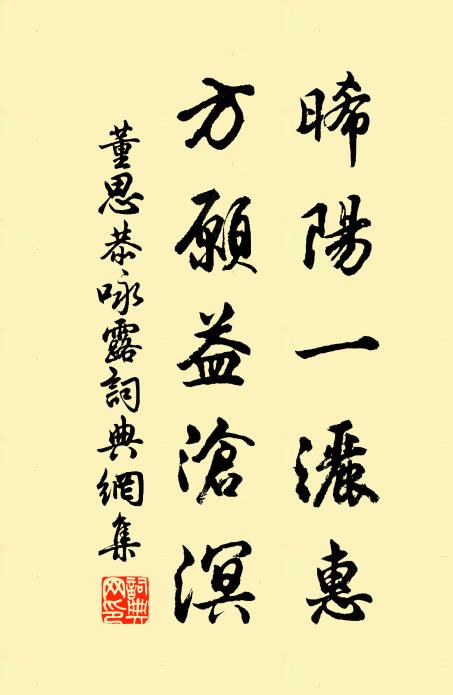 晞陽一灑惠
方願益滄溟
董思恭咏露詞典網集
詞典網印